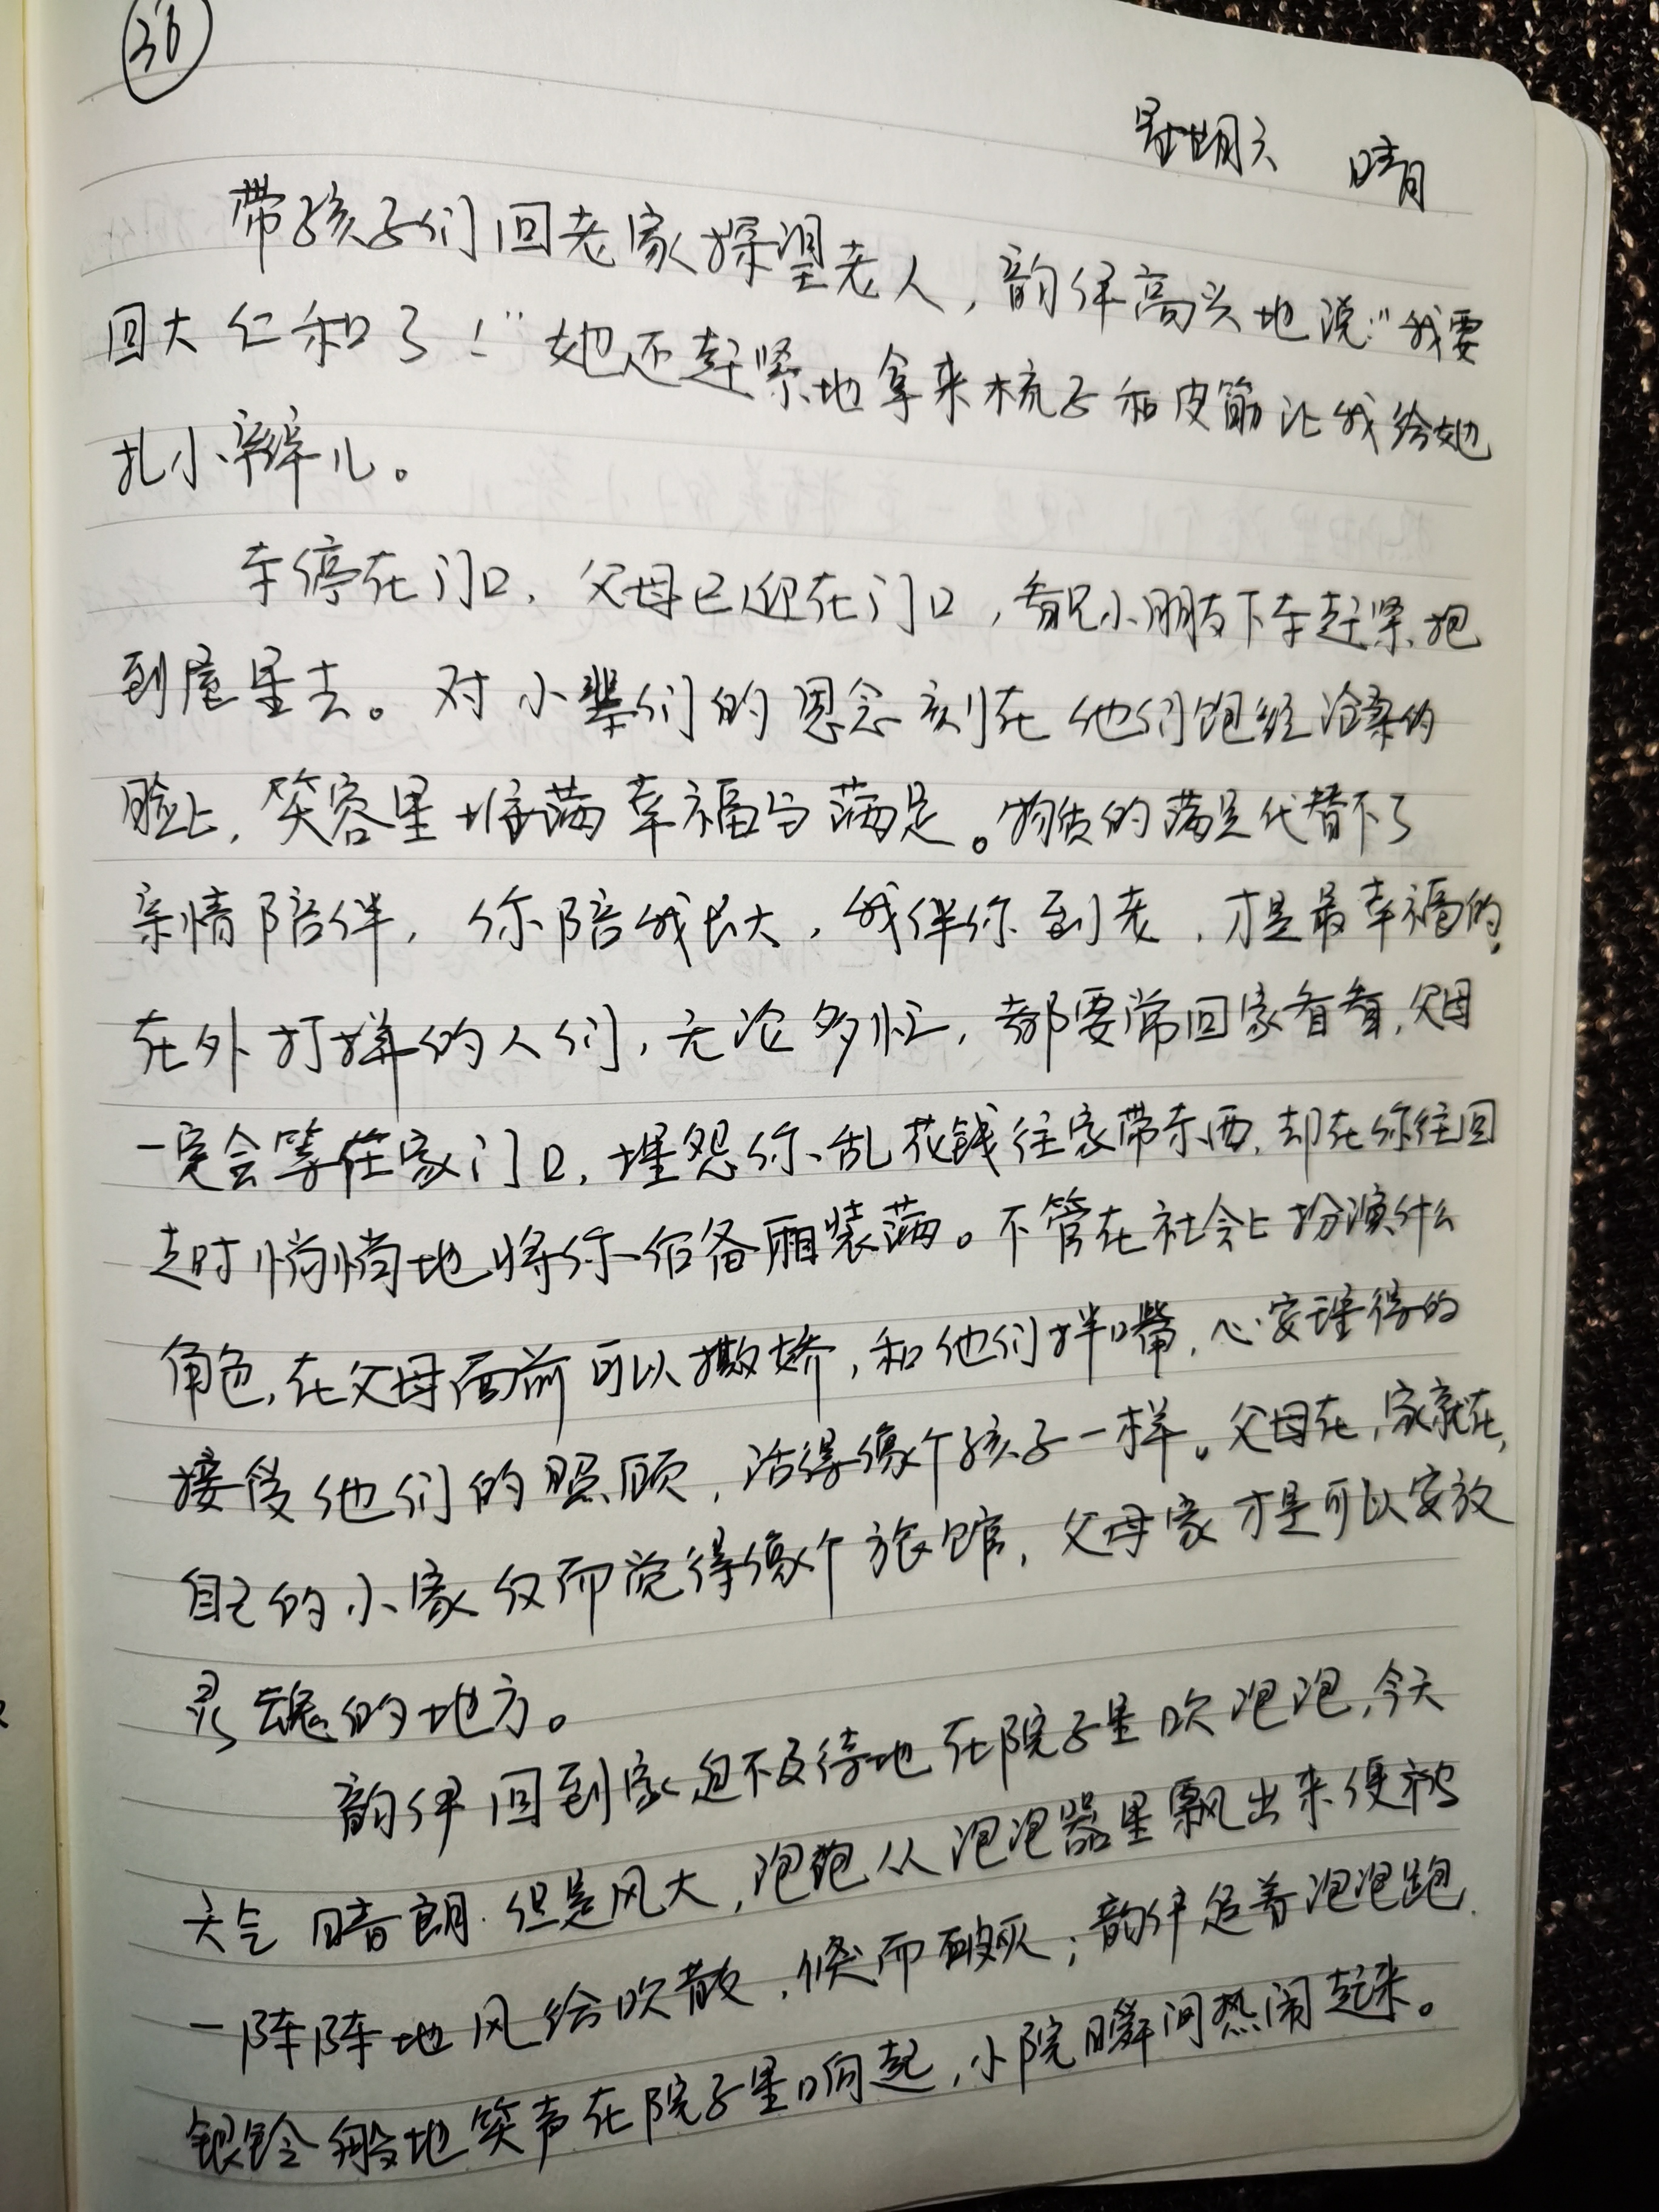 36
星期六 晴
带孩子们回老家探望老人，韵伊高兴地说："我要
回大仁和了！"她还赶紧地拿来梳子和皮筋让我给她
扎小辫儿。
车停在门口，父母已迎在门口，看见小朋友下车赶紧抱
到屋里去。对小辈们的思念刻在他们饱经沧桑的
脸上，笑容里堆满幸福与满足。物质的满足代替不了
亲情陪伴，你陪我长大，我伴你到老，才是最幸福的。
在外打拼的人们，无论多忙，都要常回家看看，父母
一定会等在家门口，埋怨你乱花钱往家带东西，却在你往回
走时悄悄地将你后备厢装满。不管在社会上扮演什么
角色，在父母面前可以撒娇，和他们拌嘴，心安理得的
接受他们的照顾，活得像个孩子一样。父母在，家就在，
自己的小家仅而觉得像个旅馆，父母家才是可以安放
灵魂的地方。
韵伊回到家迫不及待地在院子里吹泡泡，今天
天气晴朗，但是风大，泡泡从泡泡器里飘出来便被
一阵阵地风给吹散，倏而破灭；韵伊追着泡泡跑，
银铃般地笑声在院子里响起，小院瞬间热闹起来。